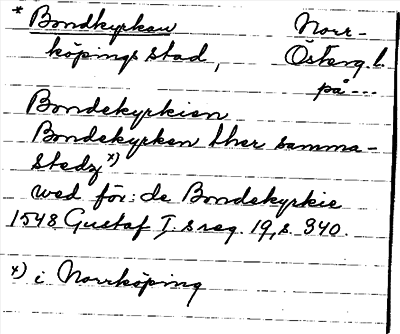 * Bondkyrkan Norr-
köpings stad, Österg. l.
på ---
Bondekyrkien
Bondekyrken ther samma-
stedz x)
wed för: de Bondekyrkie
1548 Gustaf I:s reg. 19, s. 340.
x) i Norrköping